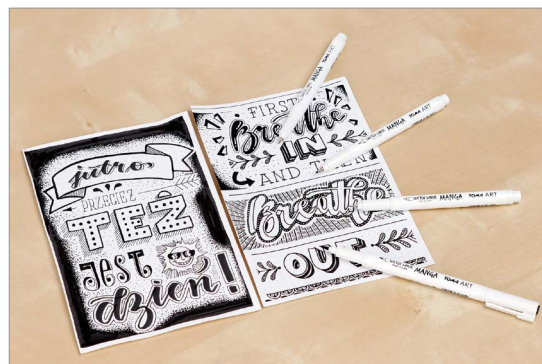 jutro
PRZECIEŻ
TEŻ
JEST
dzień!
FIRST
Breathe
IN
AND THEN
Breathe
OUT
MANGA TOMA ART
MANGA TOMA ART
MANGA TOMA ART
MANGA TOMA ART